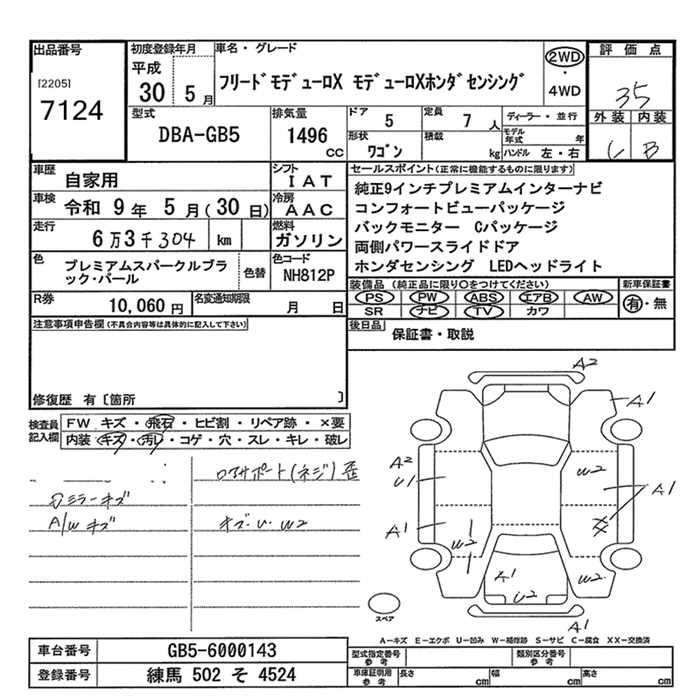 出品番号
[2205]
7124
初度登録年月
平成
30 5 月
車名・グレード
フリードモデューロX モデューロXホンダセンシング
2WD
・
4WD
評価点
35
外装 内装
C B
型式
DBA-GB5
排気量
1496
cc
ドア 5
定員 7 人
形状 ワゴン
積載 kg
ディーラー・並行
モデル年式 年
ハンドル 左・右
車歴 自家用
シフト IAT
車検 令和 9 年 5 月(30 日)
冷房 AAC
走行 6万3千304 km
燃料 ガソリン
色 プレミアムスパークルブラック・パール
色替
色コード NH812P
R券 10,060 円
名変通知期限 月 日
セールスポイント(正常に機能するものに限ります)
純正9インチプレミアムインターナビ
コンフォートビューパッケージ
バックモニター Cパッケージ
両側パワースライドドア
ホンダセンシング LEDヘッドライト
装備品 (純正品に限り○をつけてください)
PS PW ABS エアB AW
SR ナビ TV カワ
新車保証書
有・無
後日品 保証書・取説
注意事項申告欄(不具合内容等は具体的に記入して下さい)
修復歴 有〔箇所 〕
検査員記入欄
FW キズ・飛石・ヒビ割・リペア跡・×要
内装・キズ・汚レ・コゲ・穴・スレ・キレ・破レ
ミラーキズ
A/W キズ
サポート(ネジ)歪
キズ・U・W2
A2
A1
A2
U1
W2
A1
A1
W2
W2
A1
U2
A1
スペア
A－キズ E－エクボ U－凹み W－補修跡 S－サビ C－腐食 XX－交換済
車台番号 GB5-6000143
登録番号 練馬 502 そ 4524
型式指定番号
参考
類別区分番号
参考
車庫証明用
参考
長さ cm
幅 cm
高さ cm